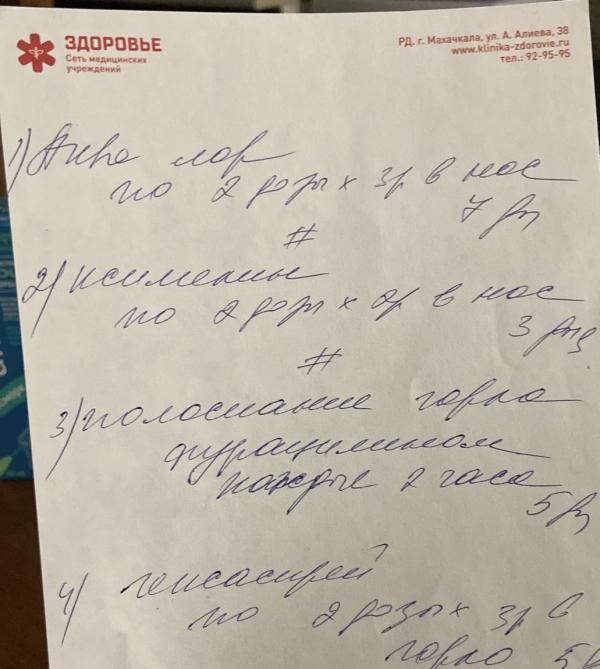 ЗДОРОВЬЕ
Сеть медицинских
учреждений
РД. г. Махачкала, ул. А. Алиева, 38
www.klinika-zdorovie.ru
тел.: 92-95-95
1) Аква лор
по 2 дозы х 3р в нос
7 дн
#
2) ксимелин
по 2 дозы х 2р в нос
3 дня
#
3) полоскание горла
фурацилином
каждые 2 часа
5 дн
4) гексаспрей
по 2 дозы х 3р в
горло 5